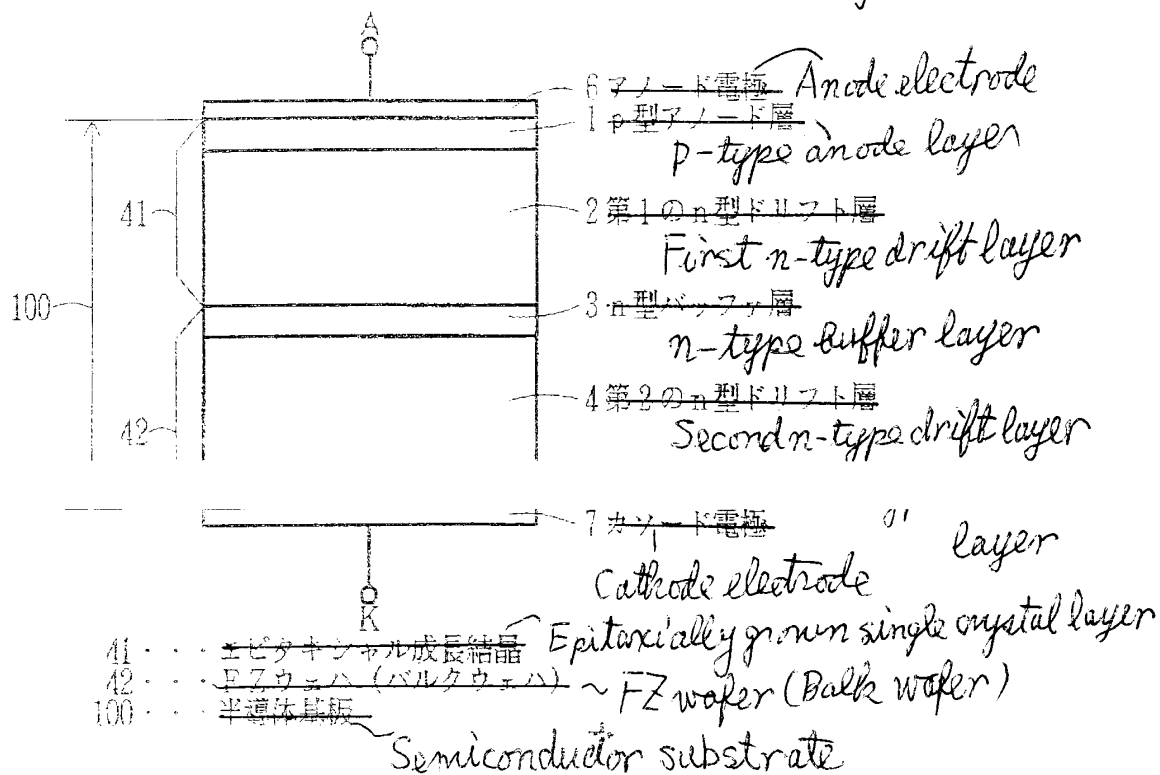 A
6 アノード電極 Anode electrode
1 p型アノード層
p-type anode layer
41
2 第1のn型ドリフト層
First n-type drift layer
100
3 n型バッファ層
n-type buffer layer
4 第2のn型ドリフト層
42
Second n-type drift layer
7 カソード電極
layer
Cathode electrode
K
41 ・・・ エピタキシャル成長結晶 Epitaxially grown single crystal layer
42 ・・・ FZウェハ (バルクウェハ) ~ FZ wafer (Balk wafer)
100 ・・・ 半導体基板
Semiconductor substrate